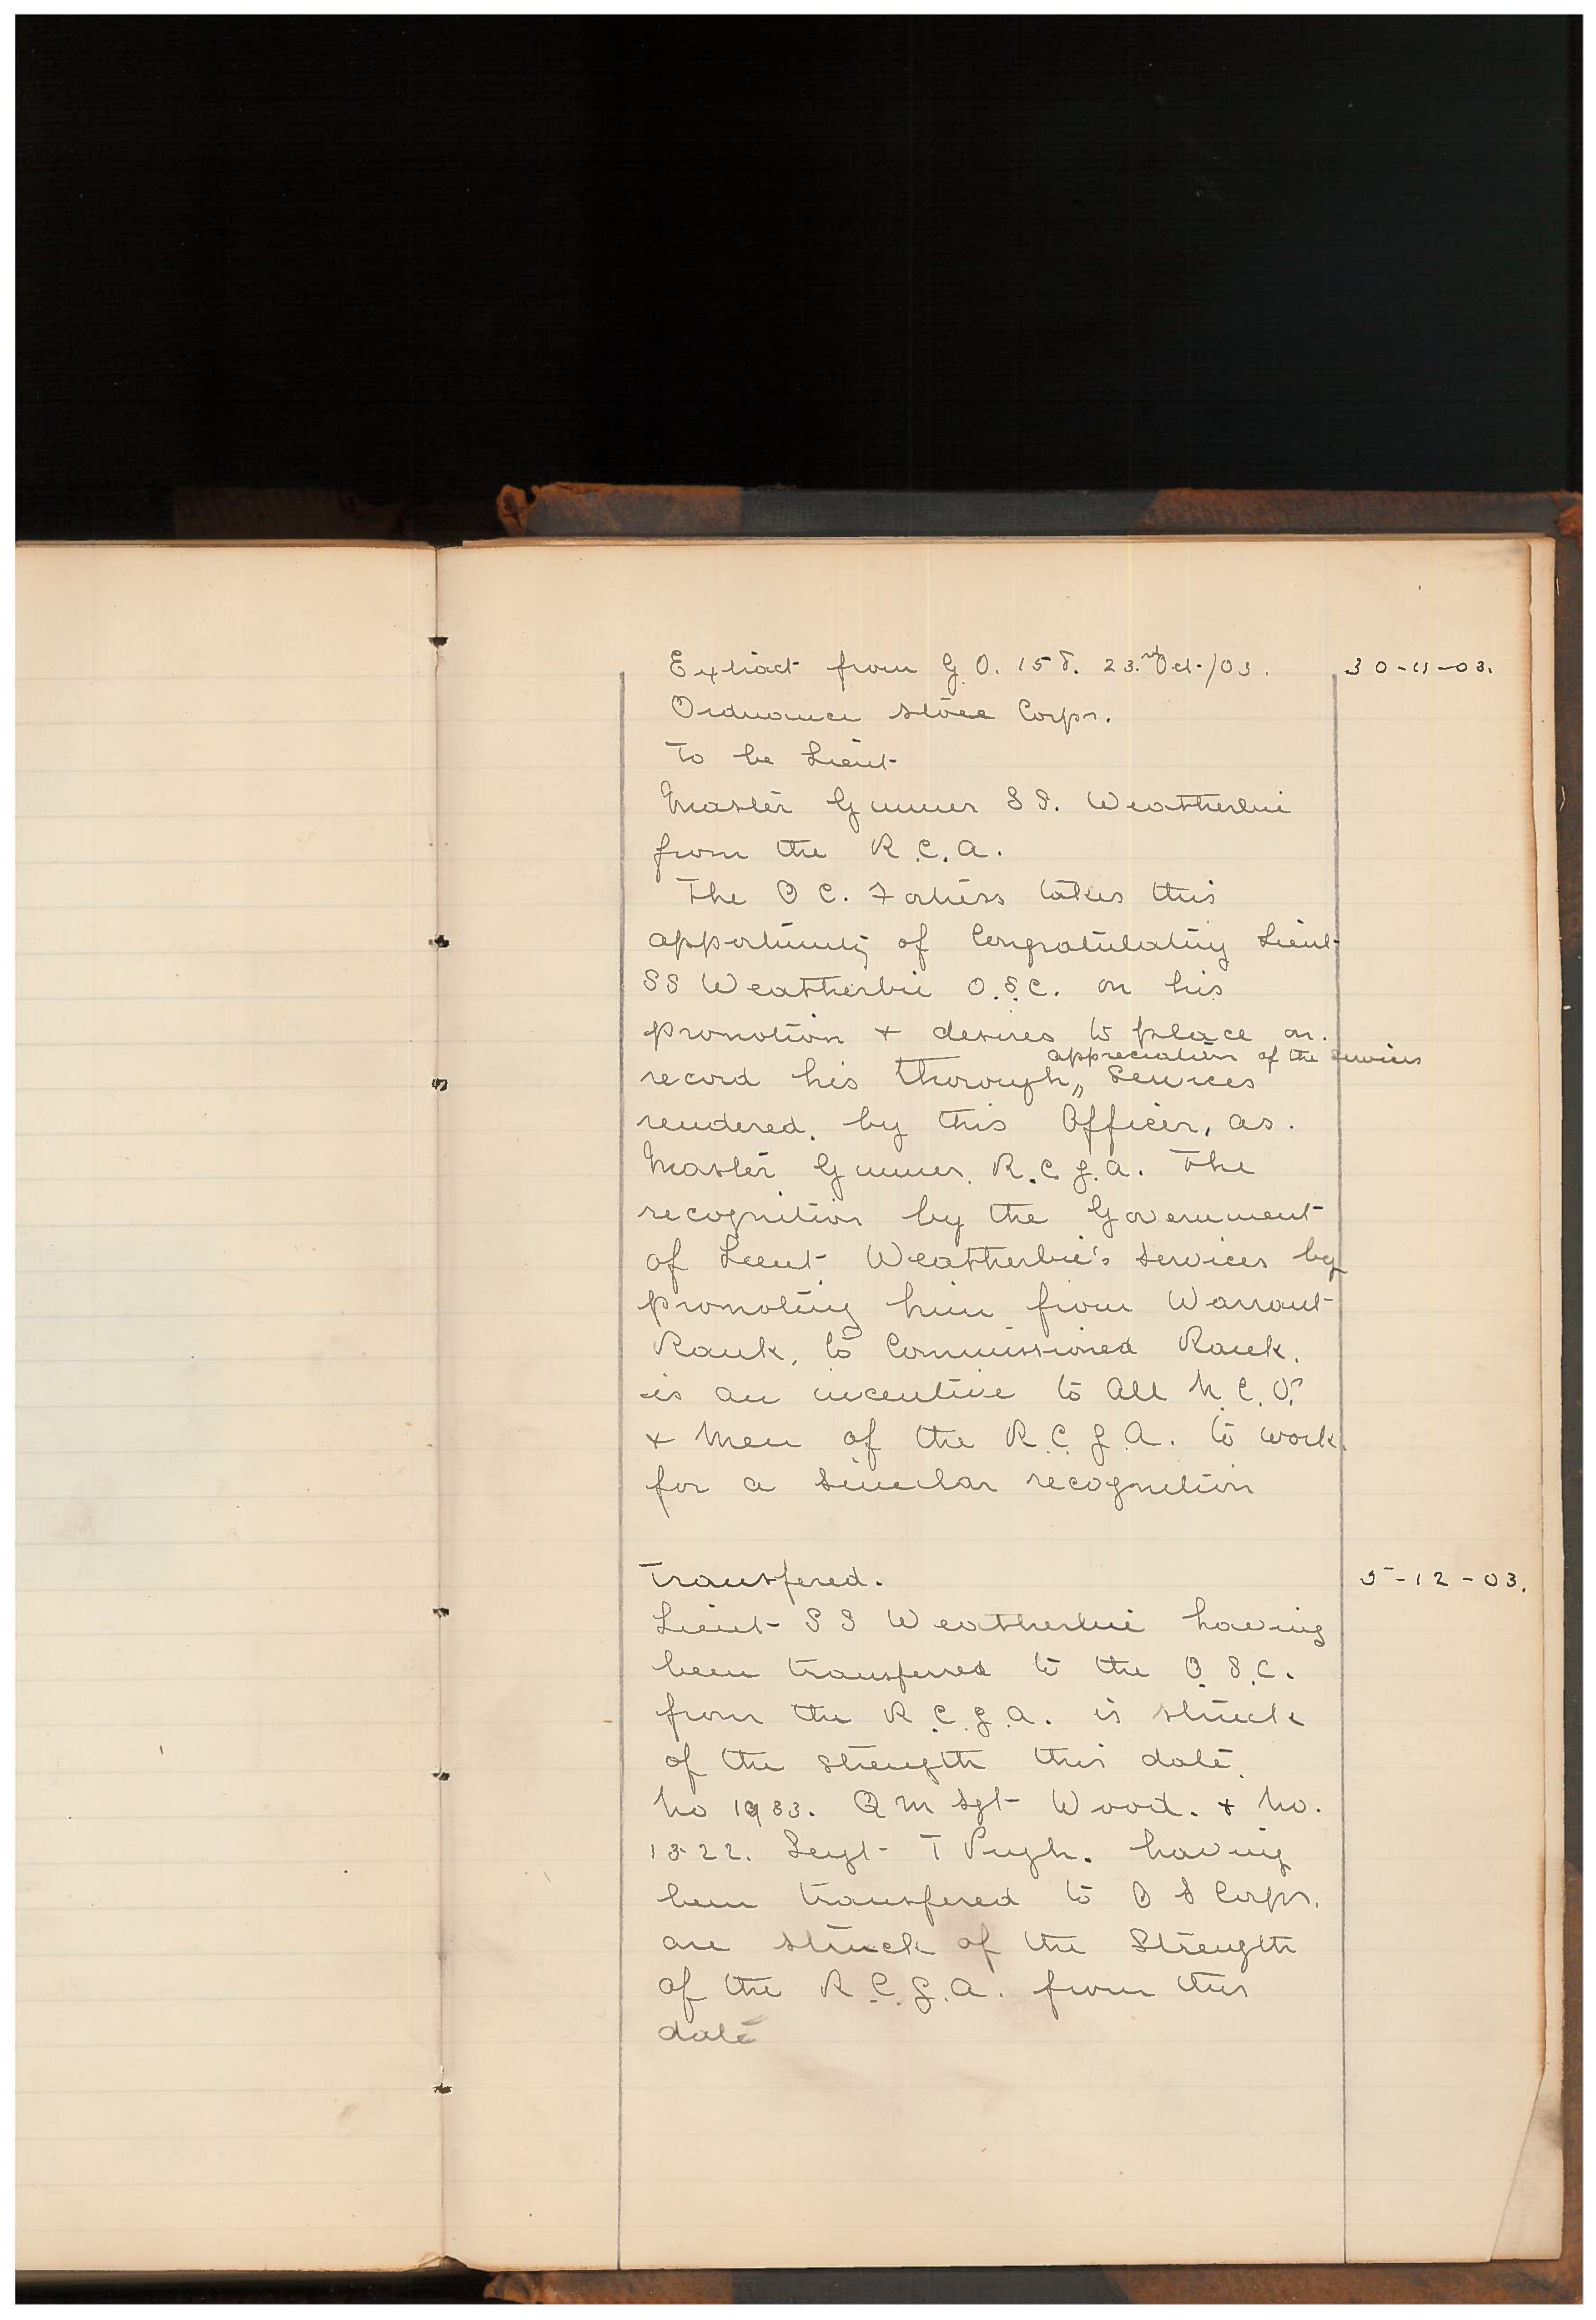 Extract from G.O. 158. 23.rd Oct./03. 30-11-03.
Ordnance Store Corps.
To be Lieut
Master Gunner S S. Weatherbie
from the R.C.A.
The O C. Fortress takes this
opportunity of Congratulating Lieut
S S Weatherbie O.S.C. on his
promotion + desires to place on.
appreciation of the services
record his thorough,, Services
rendered. by this Officer, as.
Master Gunner. R.C.G.A. The
recognition by the Government
of Lieut Weatherbie's services by
promoting him from Warrant
Rank, to Commissioned Rank.
is an incentive to all N.C.O.s
+ Men of the R.C.G.A. to work
for a similar recognition
Transfered. 5-12-03.
Lieut S S Weatherbie having
been transferred to the O.S.C.
from the R.C.G.A. is struck
of the strength this date.
No 1933. Q M Sgt Wood. + No.
1322. Sergt T Pugh. having
been transfered to O S Corps.
are struck of the Strength
of the R.C.G.A. from this
date